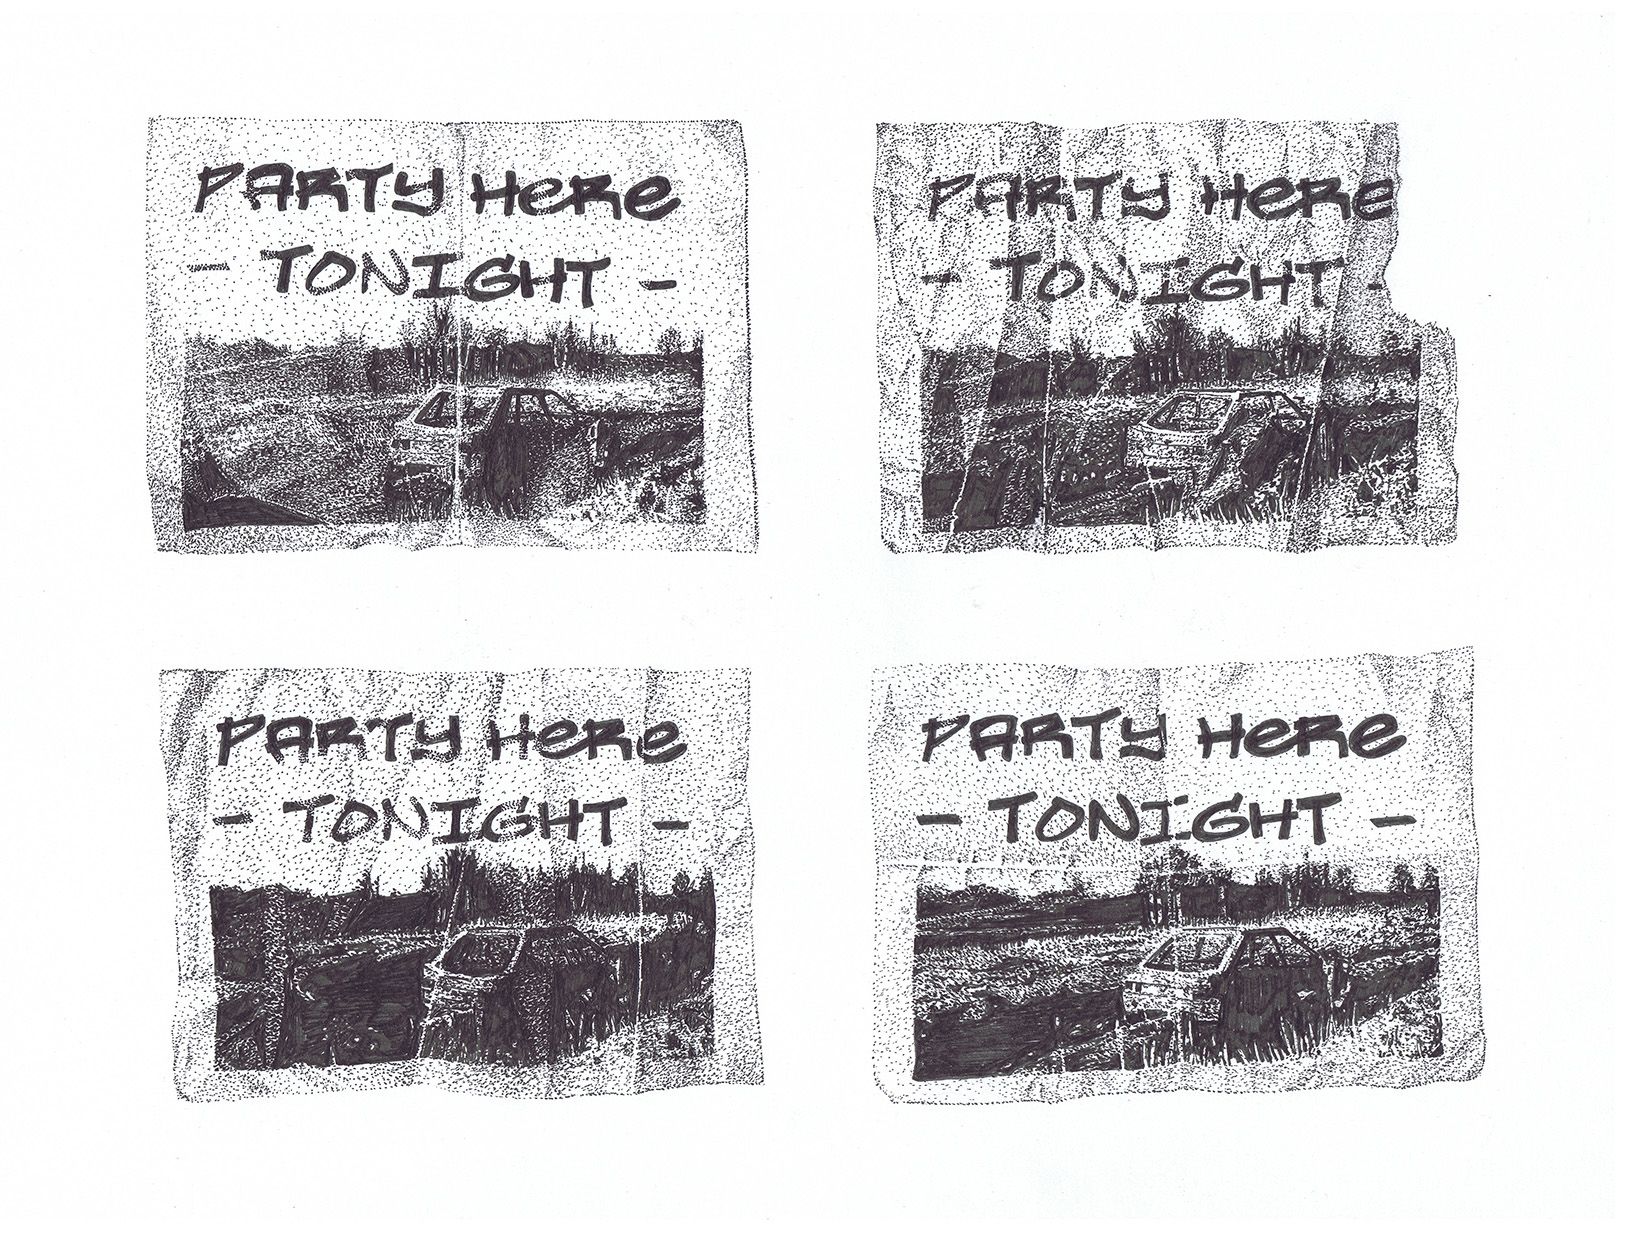 PARTY HERE
- TONIGHT -
PARTY HERE
- TONIGHT -
PARTY HERE
- TONIGHT -
PARTY HERE
- TONIGHT -